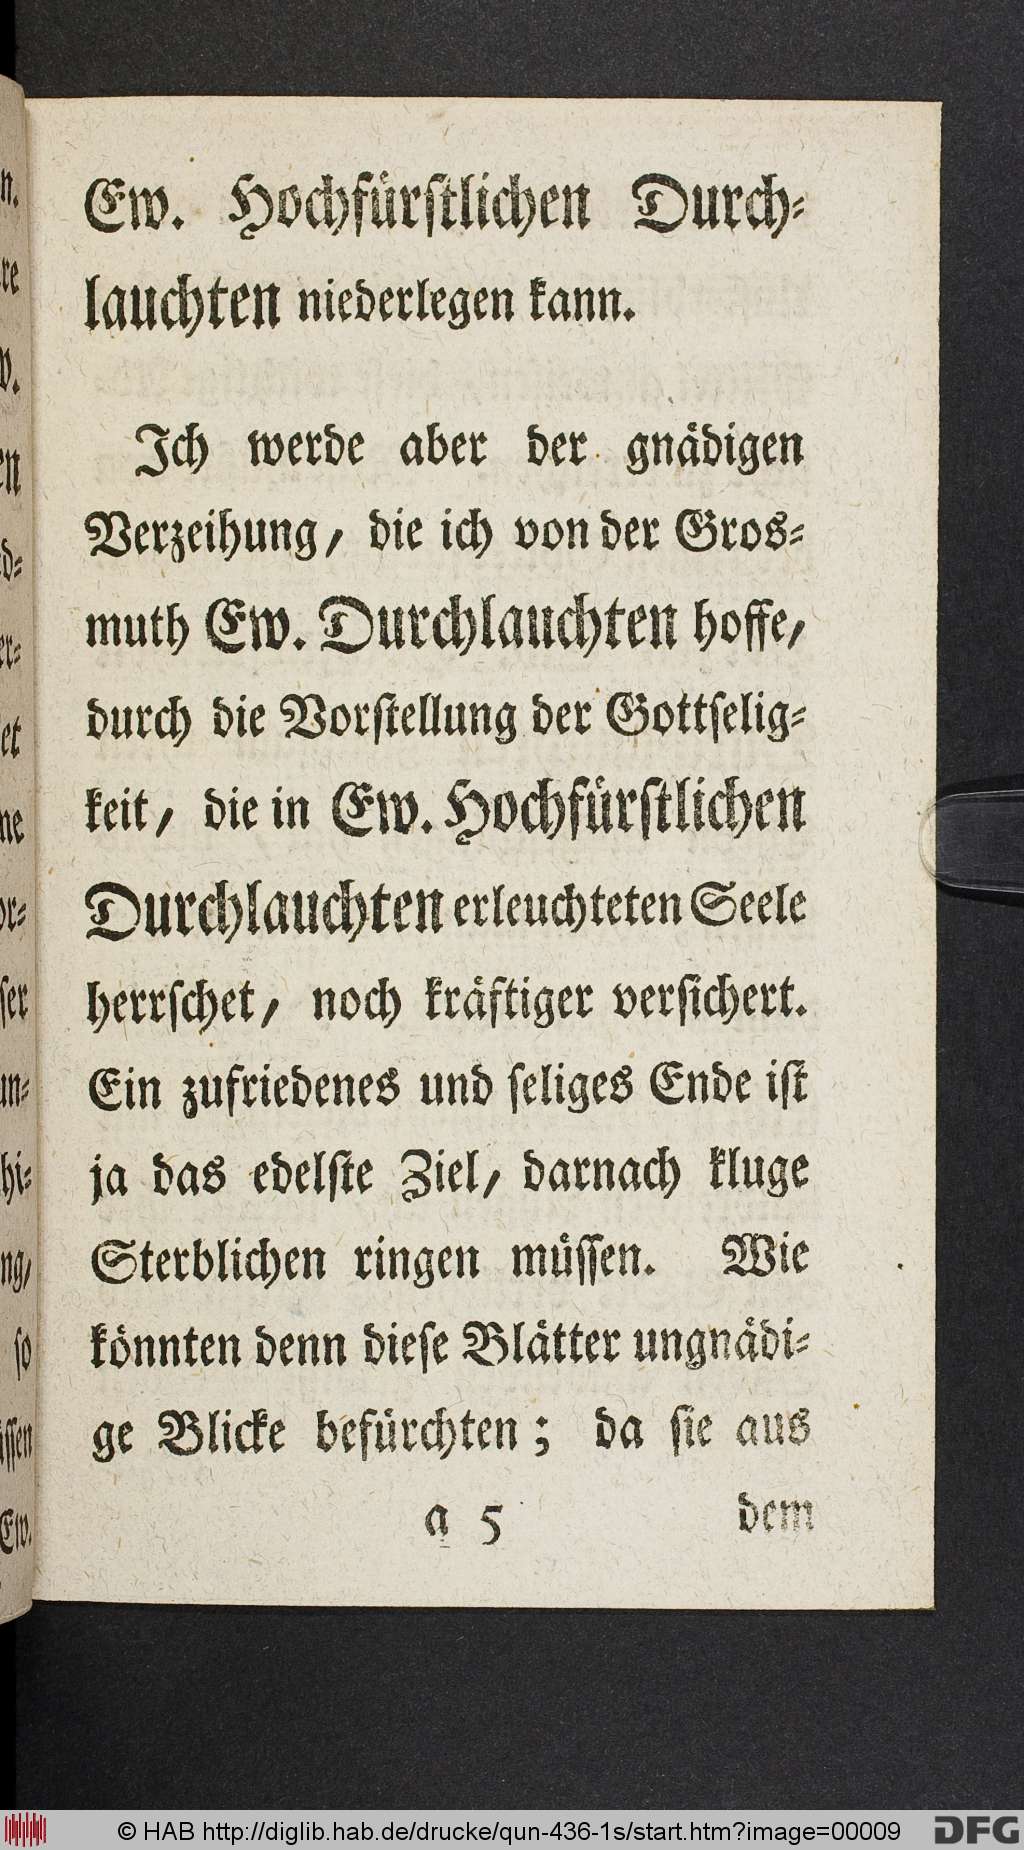 Ew. Hochfürſtlichen Durch⸗
lauchten niederlegen kann.
Ich werde aber der gnädigen
Verzeihung, die ich von der Gros⸗
muth Ew. Durchlauchten hoffe,
durch die Vorſtellung der Gottſelig⸗
keit, die in Ew. Hochfürſtlichen
Durchlauchten erleuchteten Seele
herrſchet, noch kräftiger verſichert.
Ein zufriedenes und ſeliges Ende iſt
ja das edelſte Ziel, darnach kluge
Sterblichen ringen müſſen. Wie
könnten denn dieſe Blätter ungnädi⸗
ge Blicke befürchten; da ſie aus
a 5 dem
© HAB http://diglib.hab.de/drucke/qun-436-1s/start.htm?image=00009 DFG